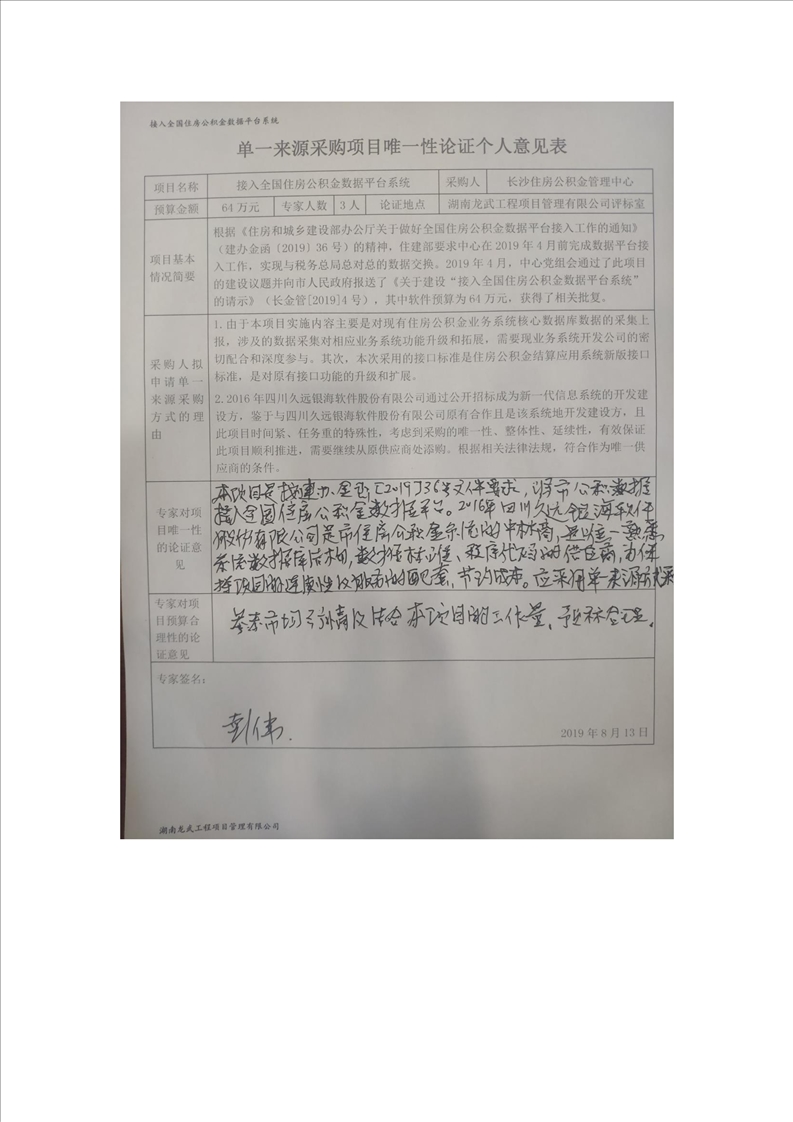 接入全国住房公积金数据平台系统
单一来源采购项目唯一性论证个人意见表
项目名称 接入全国住房公积金数据平台系统 采购人 长沙住房公积金管理中心
预算金额 64 万元 专家人数 3 人 论证地点 湖南龙武工程项目管理有限公司评标室
项目基本
情况简要
根据《住房和城乡建设部办公厅关于做好全国住房公积金数据平台接入工作的通知》
（建办金函〔2019〕36 号）的精神，住建部要求中心在 2019 年 4 月前完成数据平台接
入工作，实现与税务总局总对总的数据交换。2019 年 4 月，中心党组会通过了此项目
的建设议题并向市人民政府报送了《关于建设“接入全国住房公积金数据平台系统”
的请示》（长金管[2019]4 号），其中软件预算为 64 万元，获得了相关批复。
采购人拟
申请单一
来源采购
方式的理
由
1.由于本项目实施内容主要是对现有住房公积金业务系统核心数据库数据的采集上
报，涉及的数据采集对相应业务系统功能升级和拓展，需要现业务系统开发公司的密
切配合和深度参与。其次，本次采用的接口标准是住房公积金结算应用系统新版接口
标准，是对原有接口功能的升级和扩展。
2.2016 年四川久远银海软件股份有限公司通过公开招标成为新一代信息系统的开发建
设方，鉴于与四川久远银海软件股份有限公司原有合作且是该系统地开发建设方，且
此项目时间紧、任务重的特殊性，考虑到采购的唯一性、整体性、延续性，有效保证
此项目顺利推进，需要继续从原供应商处添购。根据相关法律法规，符合作为唯一供
应商的条件。
专家对项
目唯一性
的论证意
见
本项目是按建办金函〔2019〕36号文件要求，将市公积数据
接入全国住房公积金数据平台。2016年四川久远银海软件
股份有限公司是市住房公积金系统的中标商，是唯一熟悉
系统数据库结构，数据标准、程序代码的供应商，为保
持项目的连续性及服务的配套，节约成本。应采用单一来源方式采
专家对项
目预算合
理性的论
证意见
参考市场行情及结合本项目的工作量，预算合理。
专家签名：
彭伟.
2019 年 8 月 13 日
湖南龙武工程项目管理有限公司